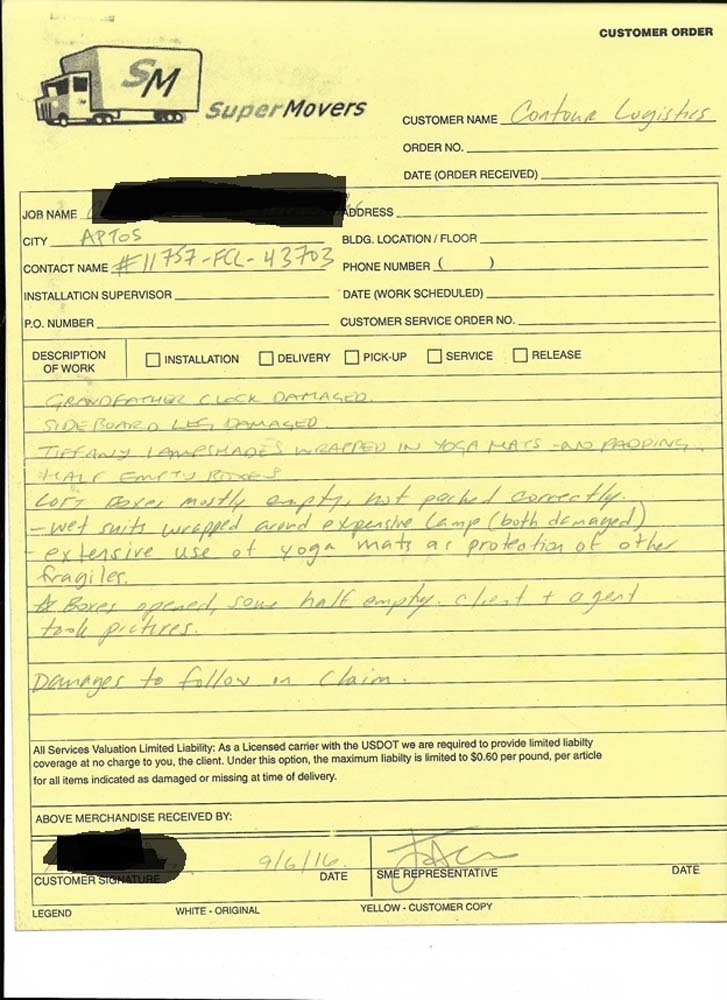 CUSTOMER ORDER
SM
SuperMovers
CUSTOMER NAME Contour Logistics
ORDER NO.
DATE (ORDER RECEIVED)
JOB NAME
ADDRESS
CITY APTOS
BLDG. LOCATION / FLOOR
CONTACT NAME #11757-FCL-43703
PHONE NUMBER ( )
INSTALLATION SUPERVISOR
DATE (WORK SCHEDULED)
P.O. NUMBER
CUSTOMER SERVICE ORDER NO.
DESCRIPTION
OF WORK
INSTALLATION
DELIVERY
PICK-UP
SERVICE
RELEASE
GRANDFATHER CLOCK DAMAGED.
SIDEBOARD LEG DAMAGED.
TIFFANY LAMPSHADES WRAPPED IN YOGA MATS - NO PADDING.
HALF EMPTY BOXES
LOFT Boxes mostly empty, not packed correctly.
- wet suits wrapped around expensive lamp (both damaged)
- extensive use of yoga mats as protection of other
fragiles.
Boxes opened, some half empty. client + agent
took pictures.
Damages to follow in claim.
All Services Valuation Limited Liability: As a Licensed carrier with the USDOT we are required to provide limited liabilty
coverage at no charge to you, the client. Under this option, the maximum liabilty is limited to $0.60 per pound, per article
for all items indicated as damaged or missing at time of delivery.
ABOVE MERCHANDISE RECEIVED BY:
9/6/16.
CUSTOMER SIGNATURE
DATE
SME REPRESENTATIVE
DATE
LEGEND
WHITE - ORIGINAL
YELLOW - CUSTOMER COPY